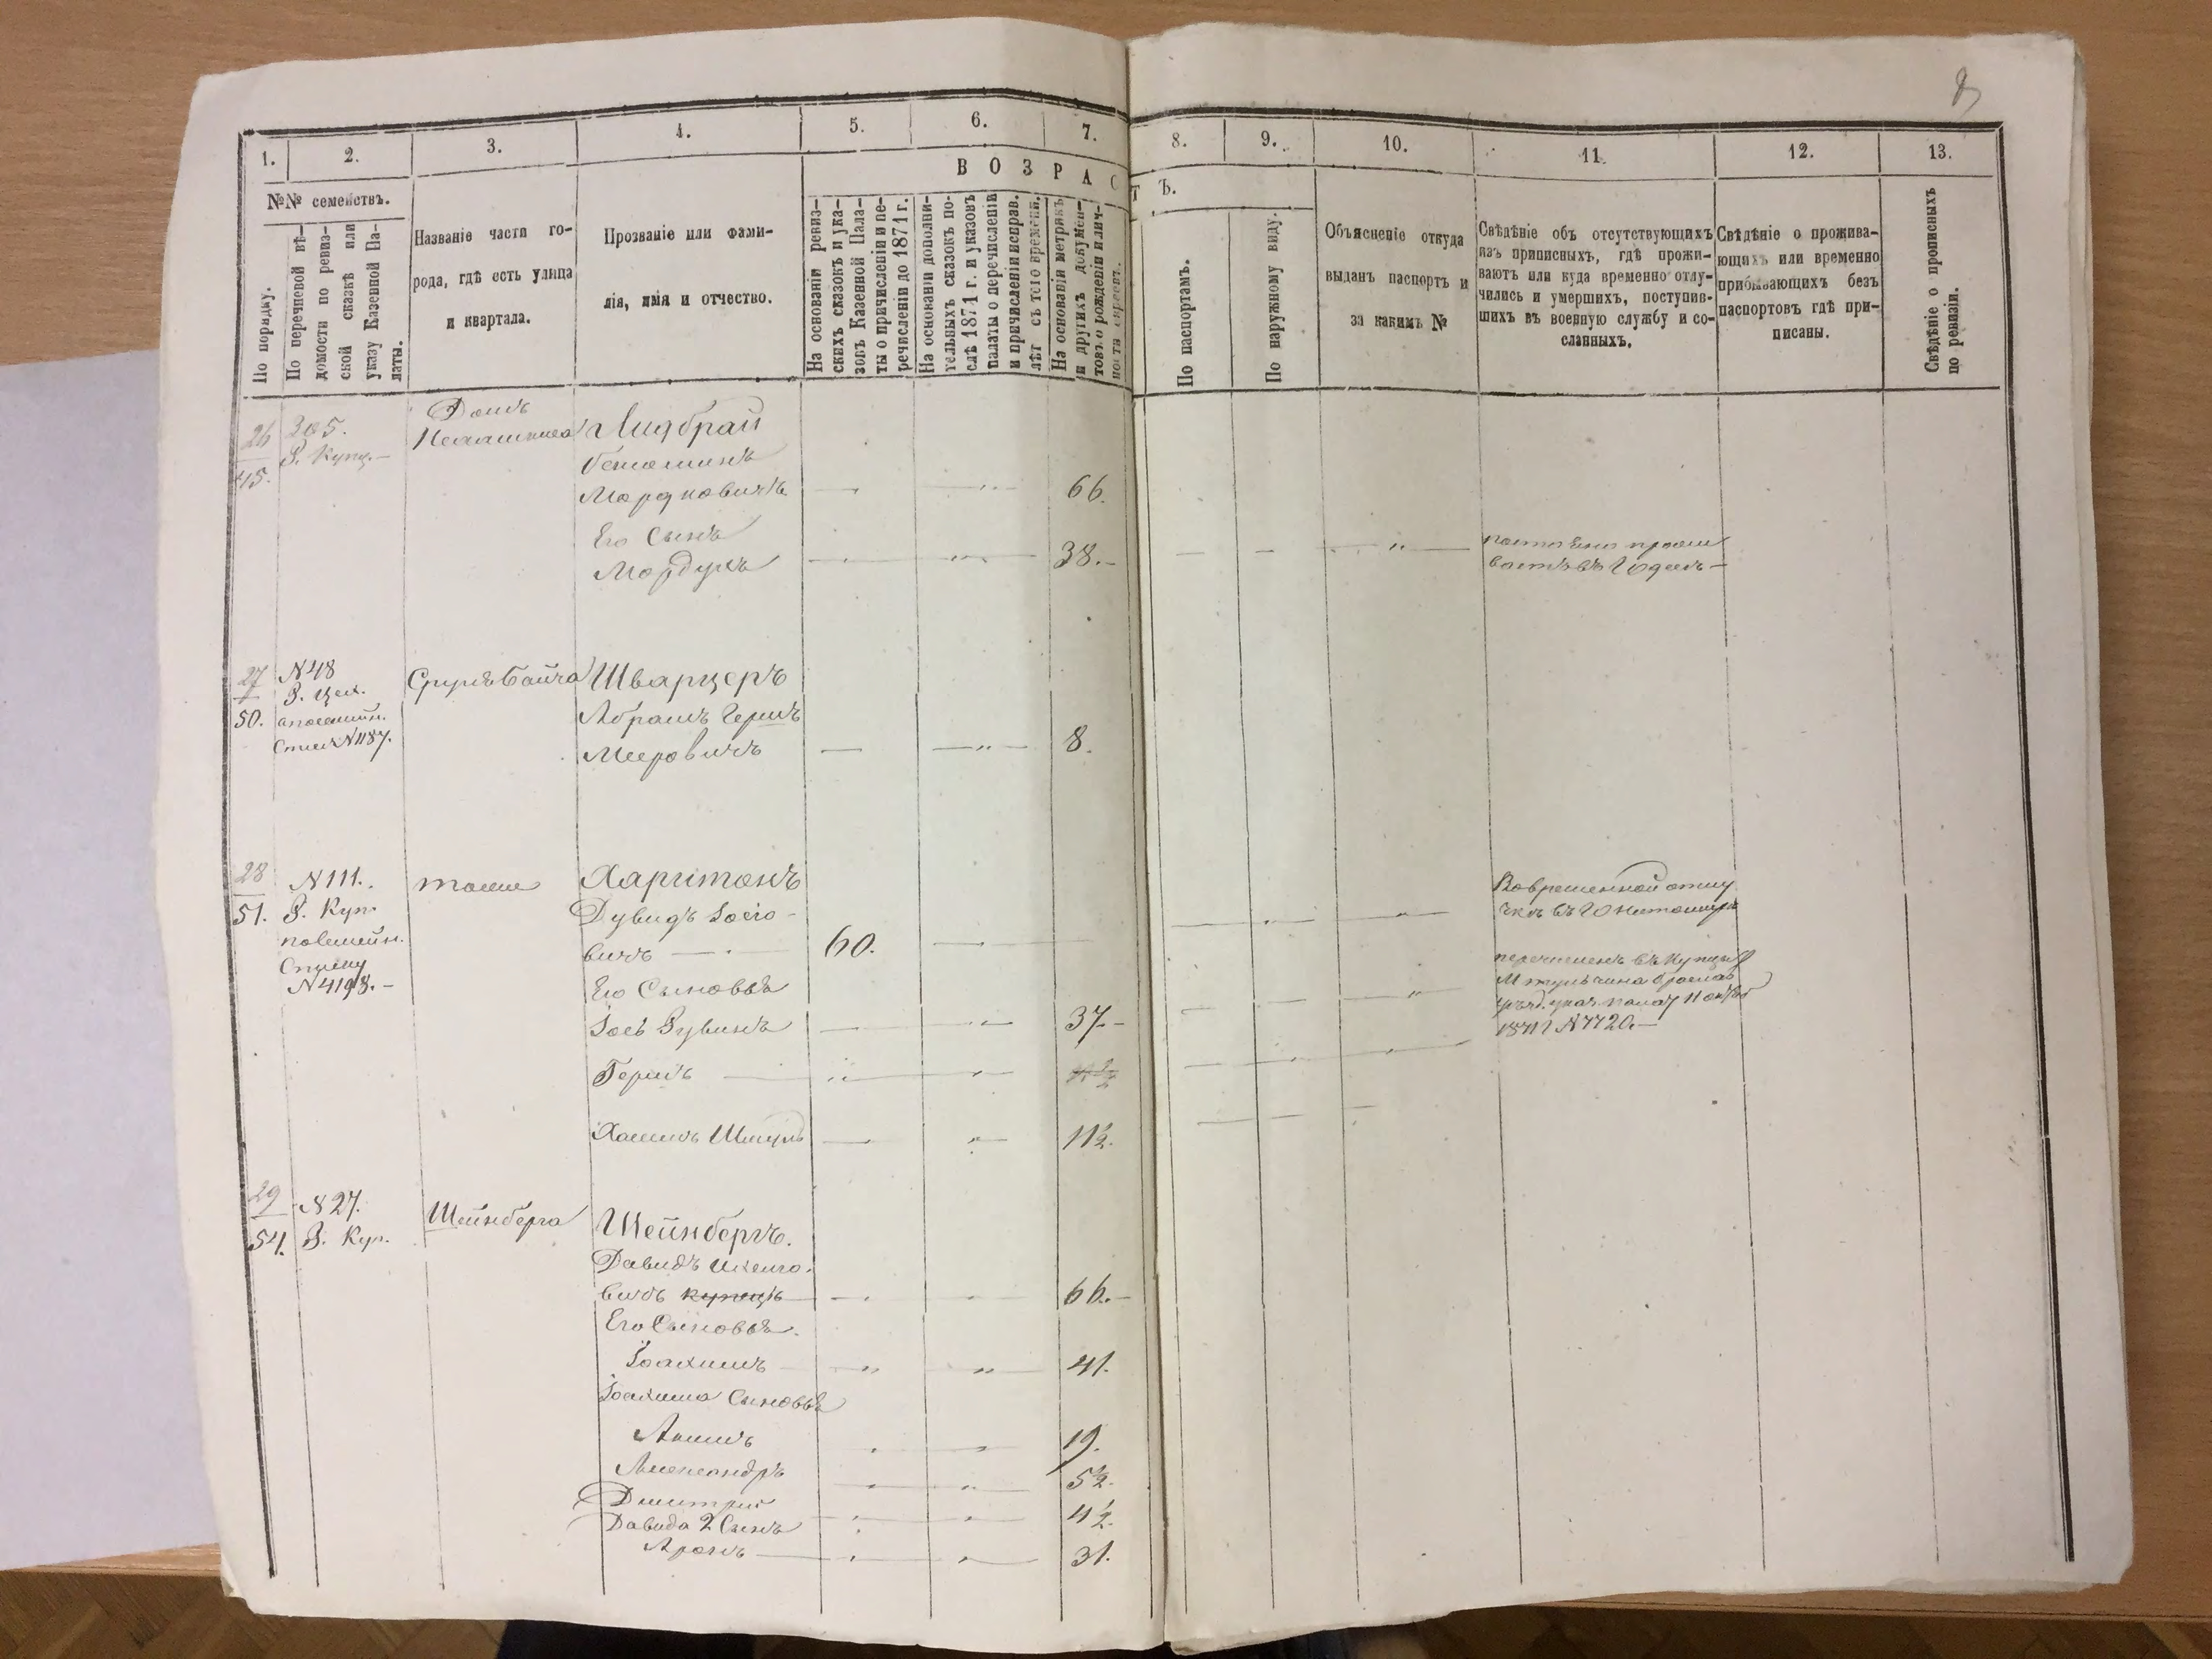 1.
2.
3.
4.
5.
6.
7.
8.
9.
10.
11.
12.
13.
ВОЗРАСТЪ.
№№ семействъ.
По порядку.
По перечневой вѣ-
домости по ревиз-
ской сказкѣ или
указу Казенной Па-
латы.
Названіе части го-
рода, гдѣ есть улица
и квартала.
Прозваніе или фами-
лія, имя и отчество.
На основаніи ревиз-
скихъ сказокъ и ука-
зовъ Казенной Пала-
ты о причисленіи и пе-
речисленіи до 1871 г.
На основаніи дополни-
тельныхъ сказокъ по-
слѣ 1871 г. и указовъ
палаты о перечисленіи
и причисленіи исправ.
лѣт съ того времени.
На основаніи метрикъ
и другихъ докумен-
товъ о рожденіи и лич-
ности евреевъ.
По паспортамъ.
По наружному виду.
Объясненіе откуда
выданъ паспортъ и
за какимъ №
Свѣдѣніе объ отсутствующихъ
изъ приписныхъ, гдѣ прожи-
ваютъ или куда временно отлу-
чились и умершихъ, поступив-
шихъ въ военную службу и со-
сланныхъ.
Свѣдѣніе о прожива-
ющихъ или временно
прибывающихъ безъ
паспортовъ гдѣ при-
писаны.
Свѣдѣніе о прописныхъ
по ревизіи.
26
45.
305.
Р. Купц.
Домъ
Мордковичъ
66.
Его Сынъ
Мордухъ
38.
27
50.
N48
Р. Цех.
N1187.
Шварцеръ
Абрамъ Гершъ
Мееровичъ
8.
28
51.
N111.
Р. Куп.
N4198.
тоже
Харитонъ
Дувидъ Іосіо-
вичъ
60.
Его Сыновья
Іось Рувинъ
37.
Гершъ
Хаимъ Шмуль
11½.
Во временной отлу
чкѣ въ
перечисленъ въ Купцы
11 октября
1871 г N7720.
29
54.
N27.
Р. Куп.
Шейнберга
Шейнбергъ.
Давидъ
вичъ купецъ
66.
Его Сыновья.
Іоахимъ
41.
Іоахима Сыновья
19.
Александръ
5½.
Дмитрий
4½.
Давида 2 Сынъ
Аронъ
31.